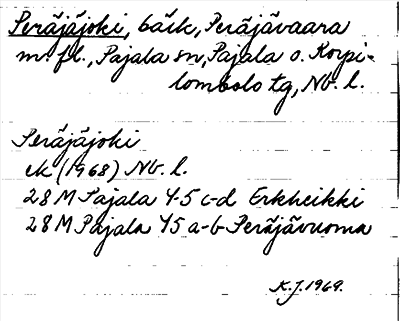 Peräjäjoki, bäck, Peräjävaara
m. fl., Pajala sn, Pajala o. Korpi-
lombolo tg, Nb. l.
Peräjäjoki
ek (1968) Nb. l.
28 M Pajala 4-5 c-d Erkheikki
28 M Pajala 45 a-b Peräjävuoma
K.J. 1969.